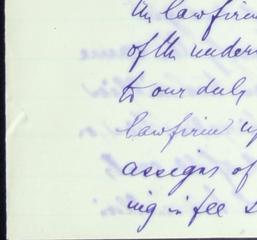 the lawfirm
of the unders
to our duly
lawfirm up
assigns of
ing in fee s